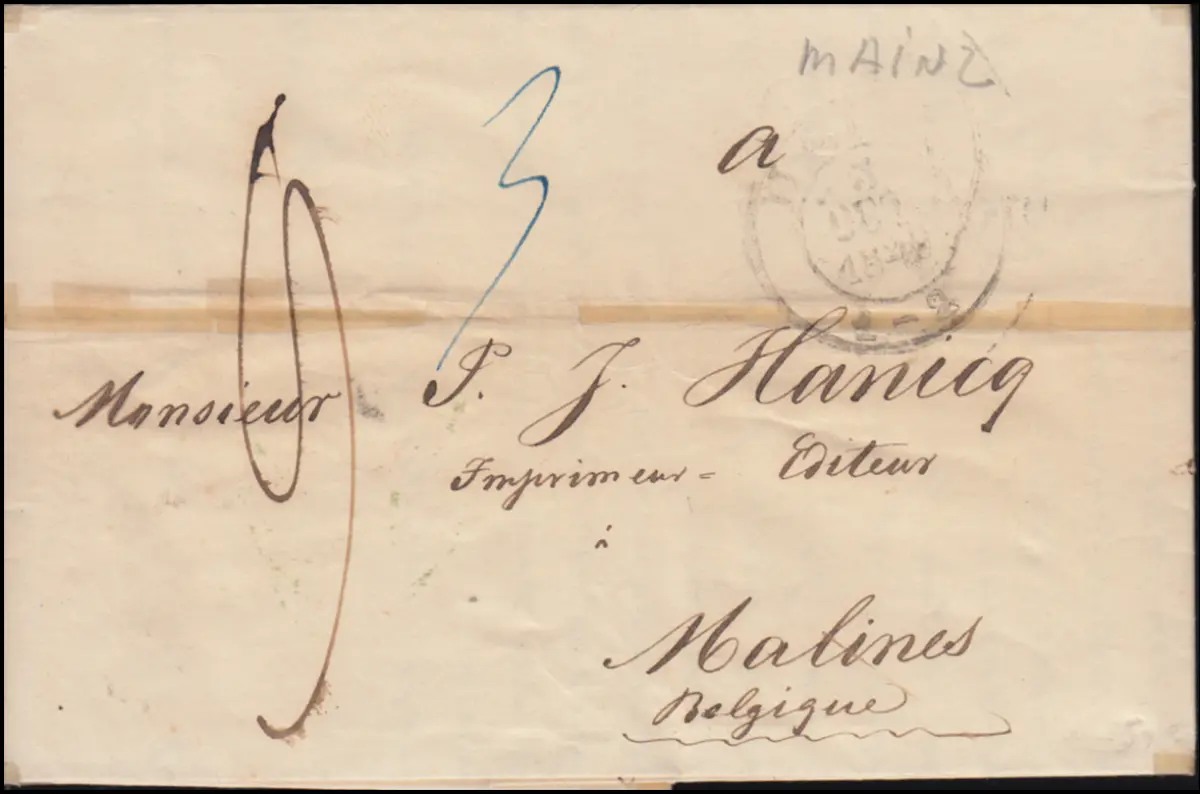 MAINZ
3
a
Monsieur P. J. Hanicq
Imprimeur = Editeur
à
Malines
Belgique